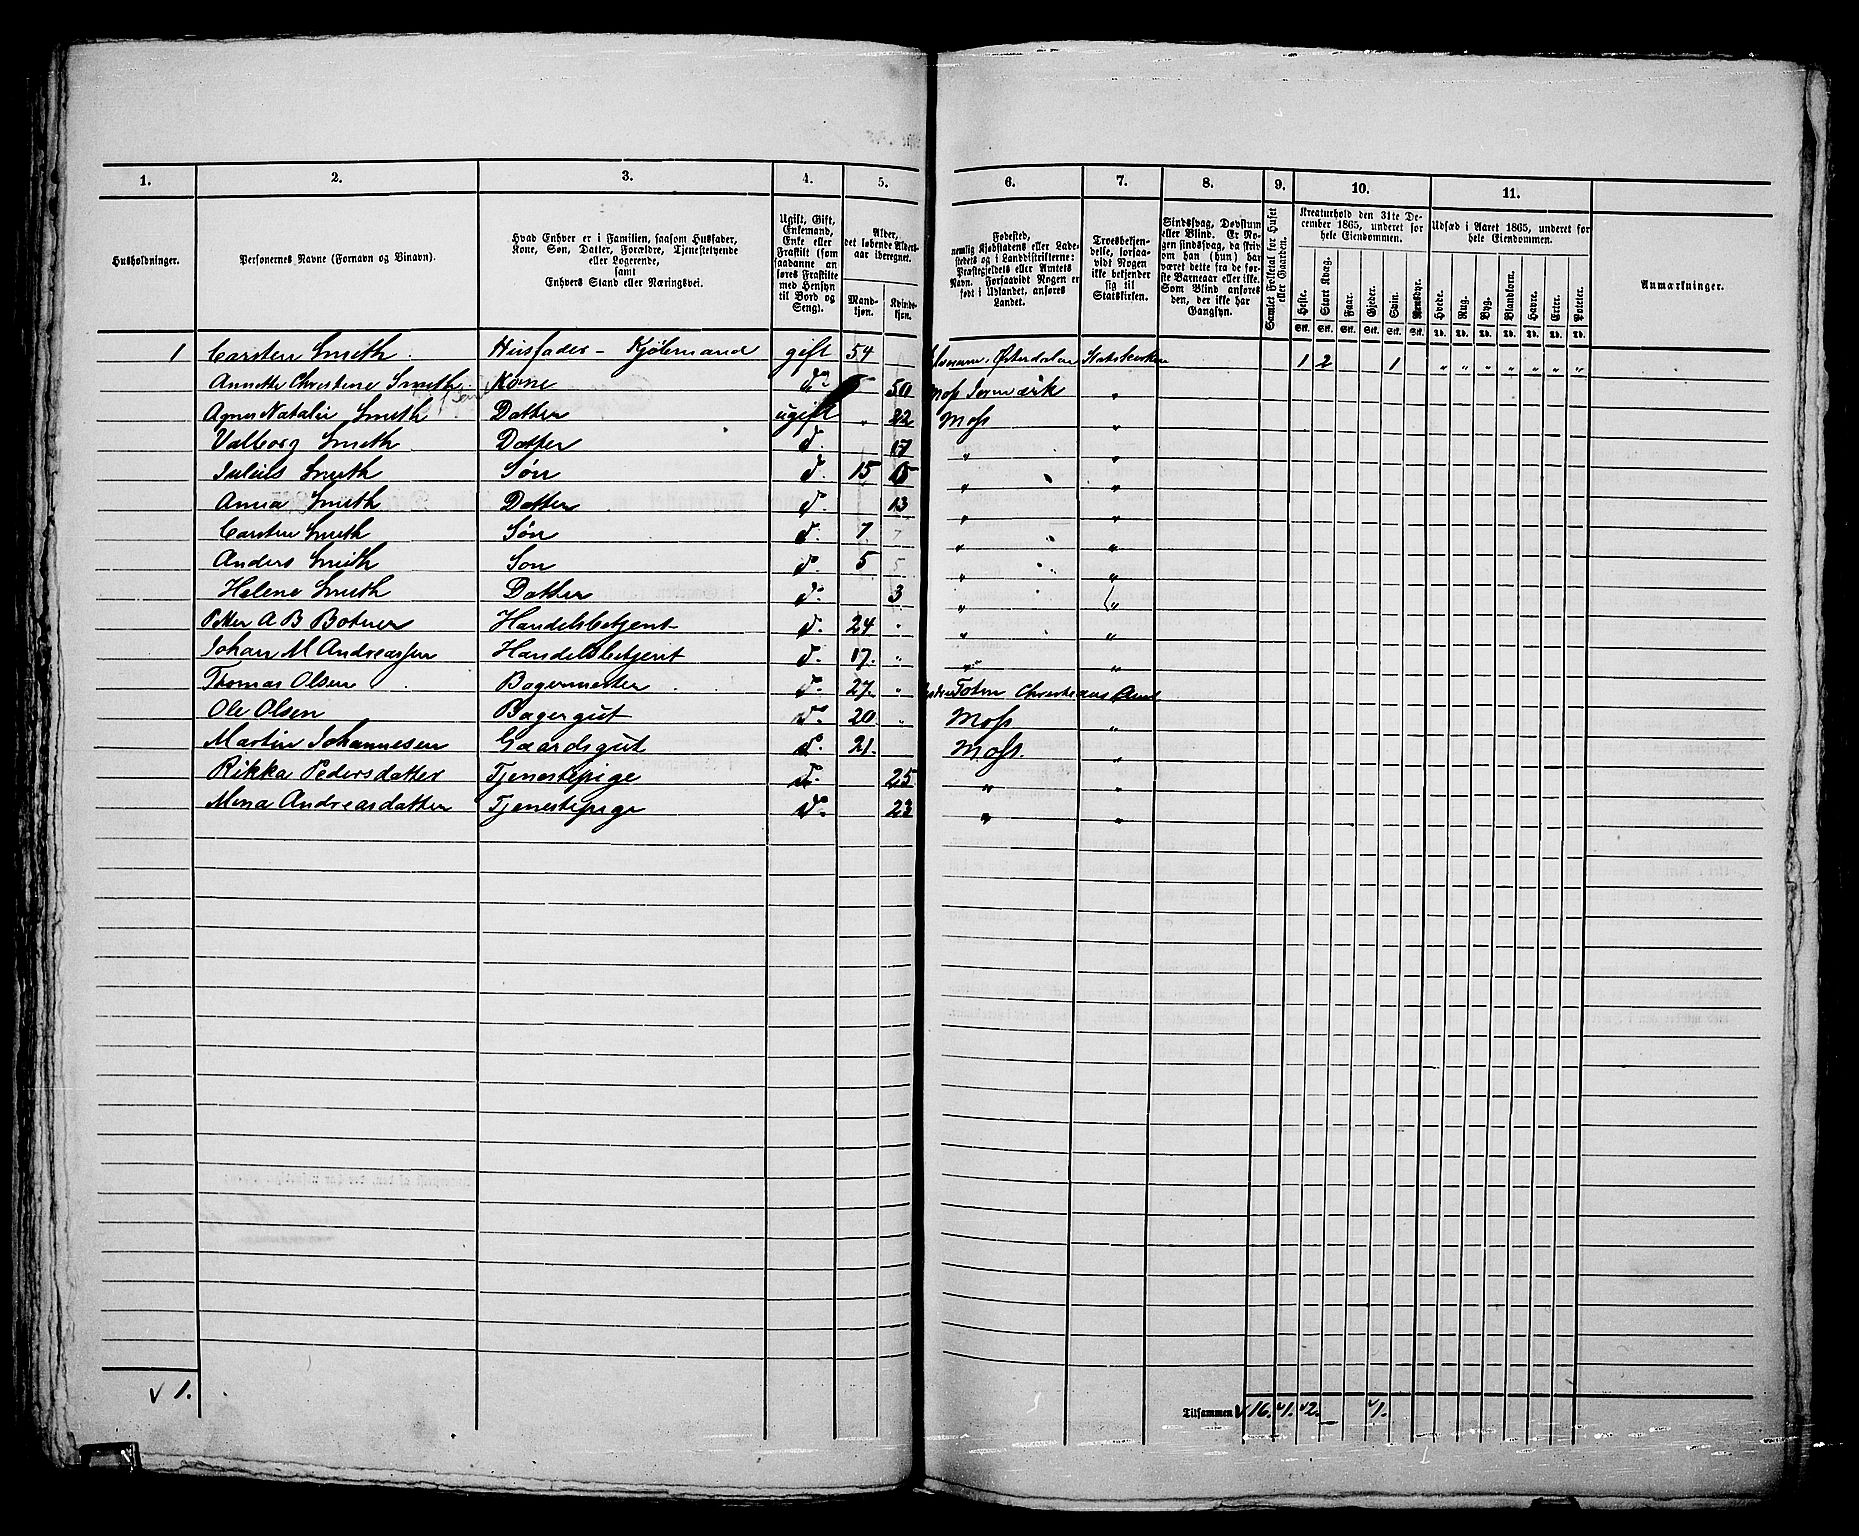 1. 2. 3. 4. 5. 6. 7. 8. 9. 10. 11.
Husholdninger.
Personernes Navne (Fornavn og Binavn).
Hvad Enhver er i Familien, saasom Husfader, Kone, Søn, Datter, Forældre, Tjenestetyende eller Logerende, samt Enhvers Stand eller Næringsvei.
Ugift, Gift, Enkemand, Enke eller Fraskilt (som saadanne anføres Fraskilte med Hensyn til Bord og Seng).
Alder, det løbende Aldersaar iberegnet.
Mandkjøn. Kvindekjøn.
Fødested, nemlig Kjøbstadens eller Ladestedets og i Landdistrikterne: Præstegjeldets eller Amtets Navn. Forsaavidt Nogen er født i Udlandet, anføres Landet.
Troesbekjendelse, forsaavidt Nogen ikke bekjender sig til Statskirken.
Sindssvag, Døvstum eller Blind. Er Nogen sindssvag, da skrives om han (hun) har været dette fra de første Barneaar eller ikke. Som Blind anføres den, der ikke har Gangsyn.
Samlet Folketal for Huset eller Gaarden.
Kreaturhold den 31te December 1865, underet for hele Eiendommen.
Heste. Stort Kvæg. Faar. Gjeder. Svin. Rensdyr.
Udsæd i Aaret 1865, underet for hele Eiendommen.
Hvede. Rug. Byg. Blandkorn. Havre. Erter. Poteter.
Anmærkninger.
Stk. Stk. Stk. Stk. Stk. Stk. Td. Td. Td. Td. Td. Td. Td.
1 Carsten Smith. Husfader - Kjøbmand gift 54 Østerdalen Statskirken 1 2 1 " " " " " " "
Annette Christine Smith Kone do 50 Moss "
Agnes Natalie Smith Datter ugift " 22 Moss "
Valborg Smith Datter d. 17 " "
Julius Smith Søn d. 15 " "
Anna Smith Datter d. 13 " "
Carsten Smith Søn d. 7 7 " "
Anders Smith Søn d. 5 5 " "
Helene Smith Datter d. 3 " "
Peter A B Botner Handelsbetjent d. 24 " " "
Johan M Andreassen Handelsbetjent d. 17. " " "
Thomas Olsen Bagermester d. 27. " Toten Christians Amt
Ole Olsen Bagergut d. 20 " Moss "
Martin Johannesen Gaardsgut d. 21. Moss. "
Rikka Pedersdatter Tjenestepige d. 25 " "
Mina Andreasdatter Tjenestepige d. 23 " "
√ 1.
Tilsammen √ 16. √1. √2. — √1.